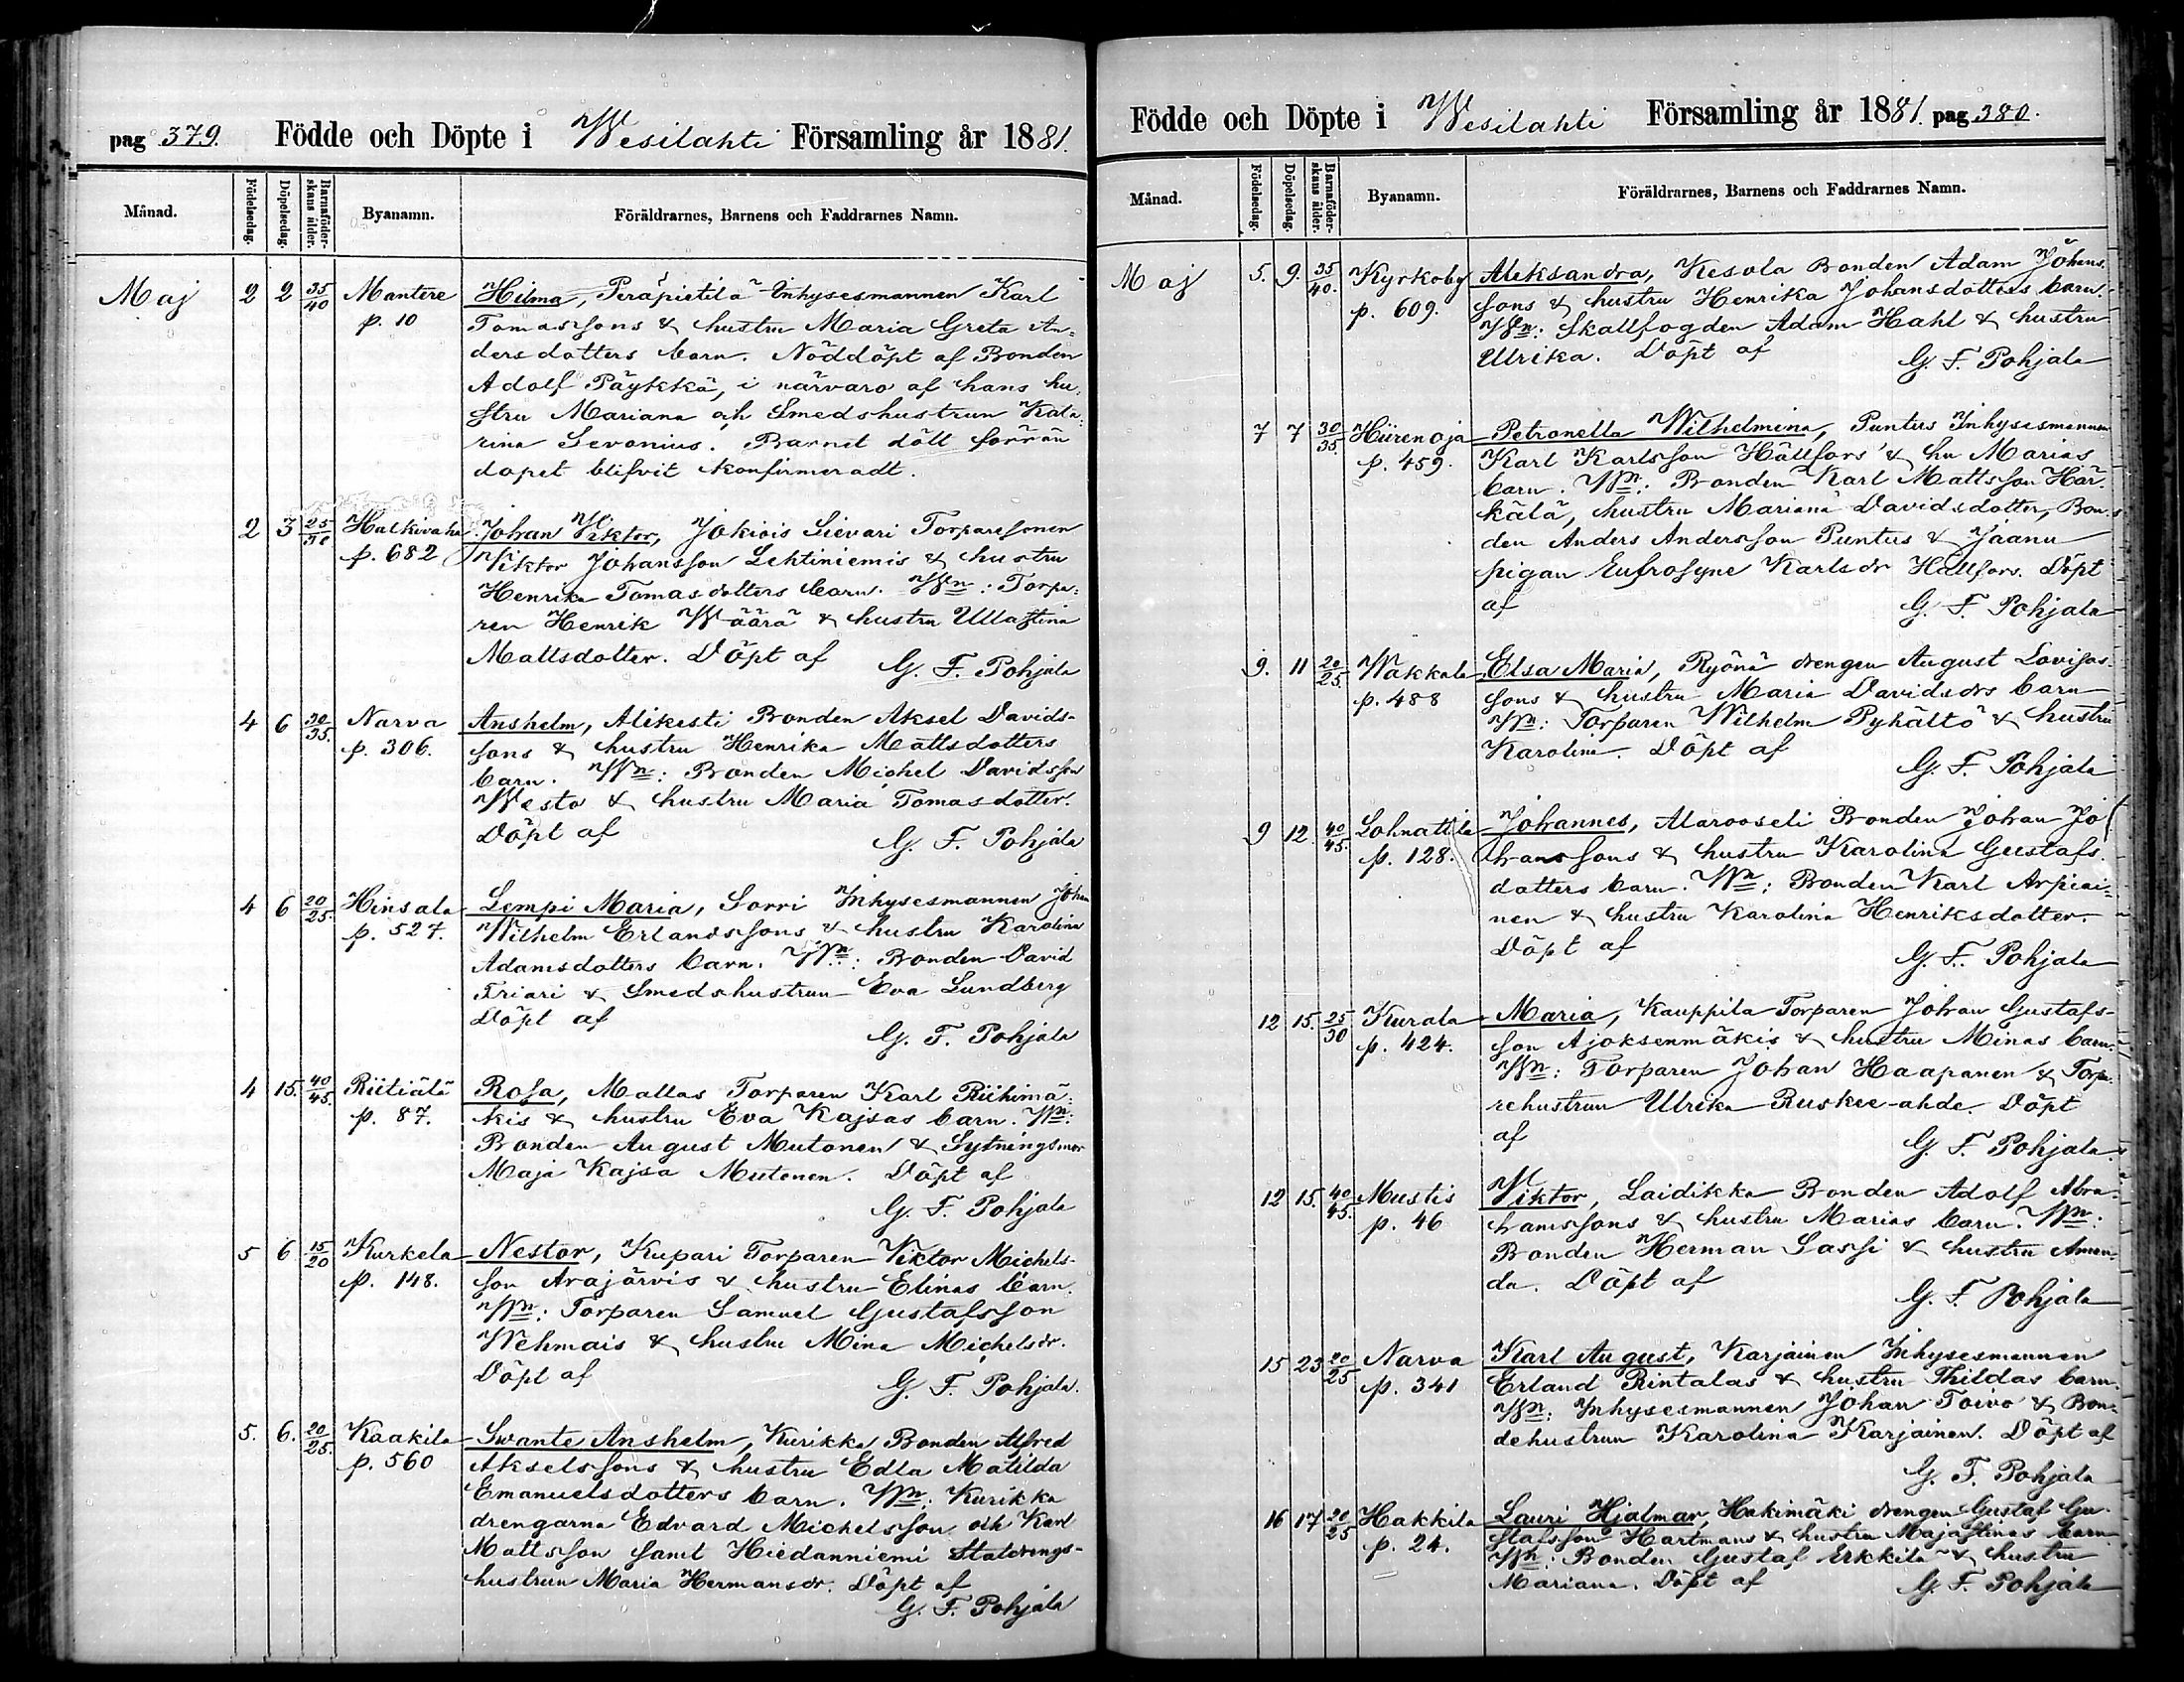 pag 379. Födde och Döpte i Wesilahti Församling år 1881.
Månad. Födelsedag. Döpelsedag. Barnaföderskans ålder. Byanamn. Föräldrarnes, Barnens och Faddrarnes Namn.
Maj 2 2 35/40 Mantere Hilma, Peräpietilä Inhysesmannen Karl
p. 10 Tomassons & hustru Maria Greta An-
dersdotters barn. Nöddöpt af Bonden
Adolf Päykkä, i närvaro af hans hu-
stru Mariana och Smedshustrun Kata-
rina Sevonius. Barnet dött förrän
dopet blifvit konfirmeradt.
2 3 25/30 Halkivaha Johan Viktor, Jokiois Sievari Torparesonen
p. 682 Viktor Johansson Lehtiniemis & hustru
Henrika Tomasdotters barn. Wn: Torpa-
ren Henrik Wäärä & hustru Ullastina
Mattsdotter. Döpt af G. F. Pohjala
4 6 30/35. Narva Anshelm, Alikesti Bonden Aksel Davids-
p. 306. sons & hustru Henrika Mattsdotters
barn. Wn: Bonden Michel Davidsson
Westo & hustru Maria Tomasdotter.
Döpt af G. F. Pohjala
4 6 20/25. Hinsala Lempi Maria, Sorri Inhysesmannen Johan
p. 527. Wilhelm Erlandssons & hustru Karolina
Adamsdotters barn. Wn: Bonden David
Friari & Smedshustrun Eva Lundberg
Döpt af G. F. Pohjala
4 15. 40/45. Riitiälä Rosa, Mattas Torparen Karl Riihimä-
p. 87. kis & hustru Eva Kajsas barn. Wn:
Bonden August Mutonen & Sytningsmor
Maja Kajsa Mutonen. Döpt af
G. F. Pohjala
5 6 15/20 Kurkela Nestor, Kupari Torparen Viktor Michels-
p. 148. son Arajärvis & hustru Elinas barn.
Wn: Torparen Samuel Gustafsson
Wehmais & hustru Mina Michelsdr.
Döpt af G. F. Pohjala.
5. 6. 20/25. Kaakila Swante Anshelm, Kurikka Bonden Alfred
p. 560 Akselssons & hustru Edla Matilda
Emanuelsdotters barn. Wn: Kurikka
drengarna Edvard Michelsson och Karl
Mattsson samt Hiedanniemi Staldrengs-
hustrun Maria Hermansdr. Döpt af
G. F. Pohjala
Födde och Döpte i Wesilahti Församling år 1881. pag 380.
Månad. Födelsedag. Döpelsedag. Barnaföderskans ålder. Byanamn. Föräldrarnes, Barnens och Faddrarnes Namn.
Maj 5. 9. 35/40. Kyrkoby Aleksandra, Kesola Bonden Adam Johans-
p. 609. sons & hustru Henrika Johansdotters barn.
Wn: Skallfogden Adam Hahl & hustru
Ulrika. Döpt af G. F. Pohjala
7 7 30/35. Hürenoja Petronella Wilhelmina, Puntus Inhysesmannen
p. 459. Karl Karlsson Hällfors' & hu Marias
barn. Wn: Bonden Karl Mattsson Här-
kälä, hustru Mariana Davidsdotter, Bon-
den Anders Andersson Puntus & Jaanu
pigan Eufrosyne Karlsdr Hällfors. Döpt
af G. F. Pohjala
9. 11 20/25. Wakkala Elsa Maria, Ryönä drengen August Lovisas-
p. 488 sons & hustru Maria Davidsdrs barn
Wn: Torparen Wilhelm Pyhältö & hustru
Karolina. Döpt af
G. F. Pohjala
9 12. 40/45. Lohnattila Johannes, Alarooseli Bonden Johan Jo-
p. 128. hanssons & hustru Karolina Gustafs-
dotters barn. Wn: Bonden Karl Arpiai-
nen & hustru Karolina Henriksdotter.
Döpt af G. F. Pohjala
12 15. 25/30 Kurala Maria, Kauppila Torparen Johan Gustafs-
p. 424. son Ajoksenmäkis & hustru Minas barn.
Wn: Torparen Johan Haapanen & Torpa-
rehustrun Ulrika Ruskee-ahde. Döpt
af G. F. Pohjala
12 15. 40/45. Mustis Viktor, Laidikka Bonden Adolf Abra-
p. 46 hamssons & hustru Marias barn. Wn:
Bonden Herman Sassi & hustru Aman-
da. Döpt af
G. F. Pohjala
15 23 20/25 Narva Karl August, Karjainen Inhysesmannen
p. 341 Erland Rintalas & hustru Thildas barn.
Wn: Inhysesmannen Johan Toivo & Bon-
dehustrun Karolina Karjainen. Döpt af
G. F. Pohjala
16 17 20/25 Hakkila Lauri Hjalmar, Hakimäki drengen Gustaf Gu-
p. 24. stafsson Hartmans & hustru Majastinas barn
Wn: Bonden Gustaf Erkkilä & hustru
Mariana. Döpt af G. F. Pohjala